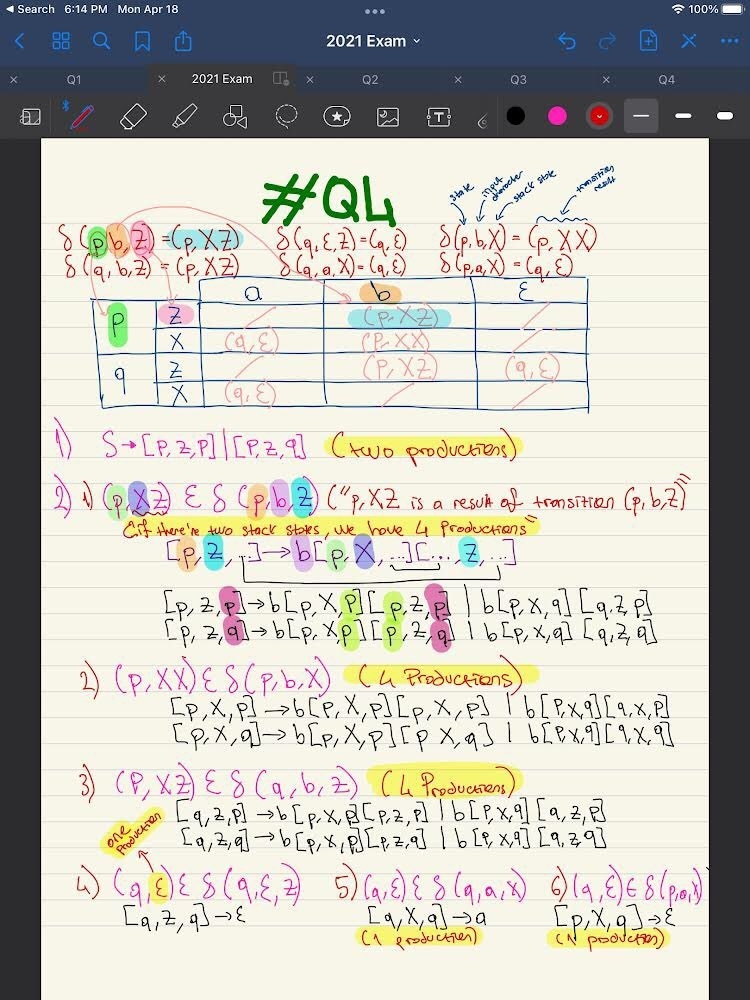 Search 6:14 PM Mon Apr 18 100%
2021 Exam
Q1 2021 Exam Q2 Q3 Q4
#Q4
state input character stack state transition result
δ(p,b,Z) = (p,XZ) δ(q,ε,Z)=(q,ε) δ(p,b,X) = (p,XX)
δ(q,b,z) = (p,XZ) δ(q,a,X)=(q,ε) δ(p,a,X)=(q,ε)
a b ε
p Z / (p,XZ) /
X (q,ε) (p,XX) /
q Z / (p,XZ) (q,ε)
X (q,ε) / /
1) S→[p,z,p]|[p,z,q] (two productions)
2) 1) (p,XZ) ε δ(p,b,Z) ("p,XZ is a result of transition (p,b,z)"
"if there're two stack states, we have 4 productions"
[p,Z,...]→b[p,X,...][...,Z,...]
[p,Z,p]→b[p,X,p][p,Z,p] | b[p,X,q][q,Z,p]
[p,Z,q]→b[p,X,p][p,Z,q] | b[p,X,q][q,Z,q]
2) (p,XX) ε δ(p,b,X) (4 Productions)
[p,X,p]→b[p,X,p][p,X,p] | b[p,X,q][q,X,p]
[p,X,q]→b[p,X,p][p X,q] | b[p,X,q][q,X,q]
3) (P,XZ) ε δ(q,b,z) (4 Productions)
[q,Z,p]→b[p,X,p][p,z,p] | b[p,X,q][q,z,p]
[q,Z,q]→b[p,X,p][p,z,q] | b[p,X,q][q,z,q]
one production
4) (q,ε) ε δ(q,ε,Z) 5) (q,ε) ε δ(q,a,X) 6) (q,ε) ∈ δ(p,a,X)
[q,Z,q]→ε [q,X,q]→a [p,X,q]→ε
(1 production) (1 production)